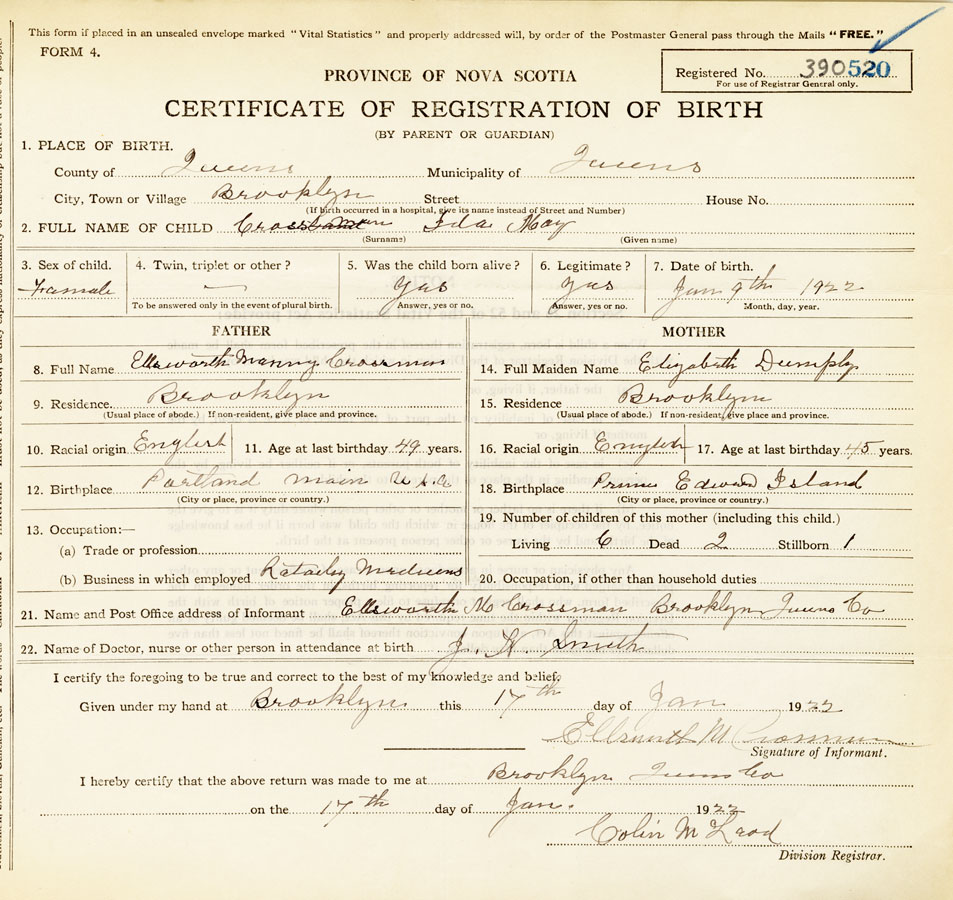 This form if placed in an unsealed envelope marked "Vital Statistics" and properly addressed will, by order of the Postmaster General pass through the Mails "FREE."
FORM 4.
PROVINCE OF NOVA SCOTIA
Registered No. 390520
For use of Registrar General only.
CERTIFICATE OF REGISTRATION OF BIRTH
(BY PARENT OR GUARDIAN)
1. PLACE OF BIRTH.
County of Queens Municipality of Queens
City, Town or Village Brooklyn Street House No.
(If birth occurred in a hospital, give its name instead of Street and Number)
2. FULL NAME OF CHILD Ida May
(Surname) (Given name)
3. Sex of child. 4. Twin, triplet or other? 5. Was the child born alive? 6. Legitimate? 7. Date of birth.
Famale — yas yas Jan 9th 1922
To be answered only in the event of plural birth. Answer, yes or no. Answer, yes or no. Month, day, year.
FATHER MOTHER
8. Full Name Ellsworth Manny Crossman 14. Full Maiden Name Elizabeth Dumply
9. Residence. Brooklyn 15. Residence Brooklyn
(Usual place of abode.) If non-resident, give place and province. (Usual place of abode.) If non-resident, give place and province.
10. Racial origin 11. Age at last birthday 49 years. 16. Racial origin 17. Age at last birthday 45 years.
12. Birthplace Portland Main U.S.A. 18. Birthplace Prince Edward Island
(City or place, province or country.) (City or place, province or country.)
13. Occupation:— 19. Number of children of this mother (including this child.)
(a) Trade or profession Living 6 Dead 2 Stillborn 1
(b) Business in which employed 20. Occupation, if other than household duties
21. Name and Post Office address of Informant Ellsworth M Crossman Brooklyn Queens Co
22. Name of Doctor, nurse or other person in attendance at birth J. H Smith
I certify the foregoing to be true and correct to the best of my knowledge and belief.
Given under my hand at Brooklyn this 17th day of Jan 1922
Ellsworth M Crossman
Signature of Informant.
I hereby certify that the above return was made to me at Brooklyn Queens Co
on the 17th day of Jan. 1922
Colin M Leod
Division Registrar.